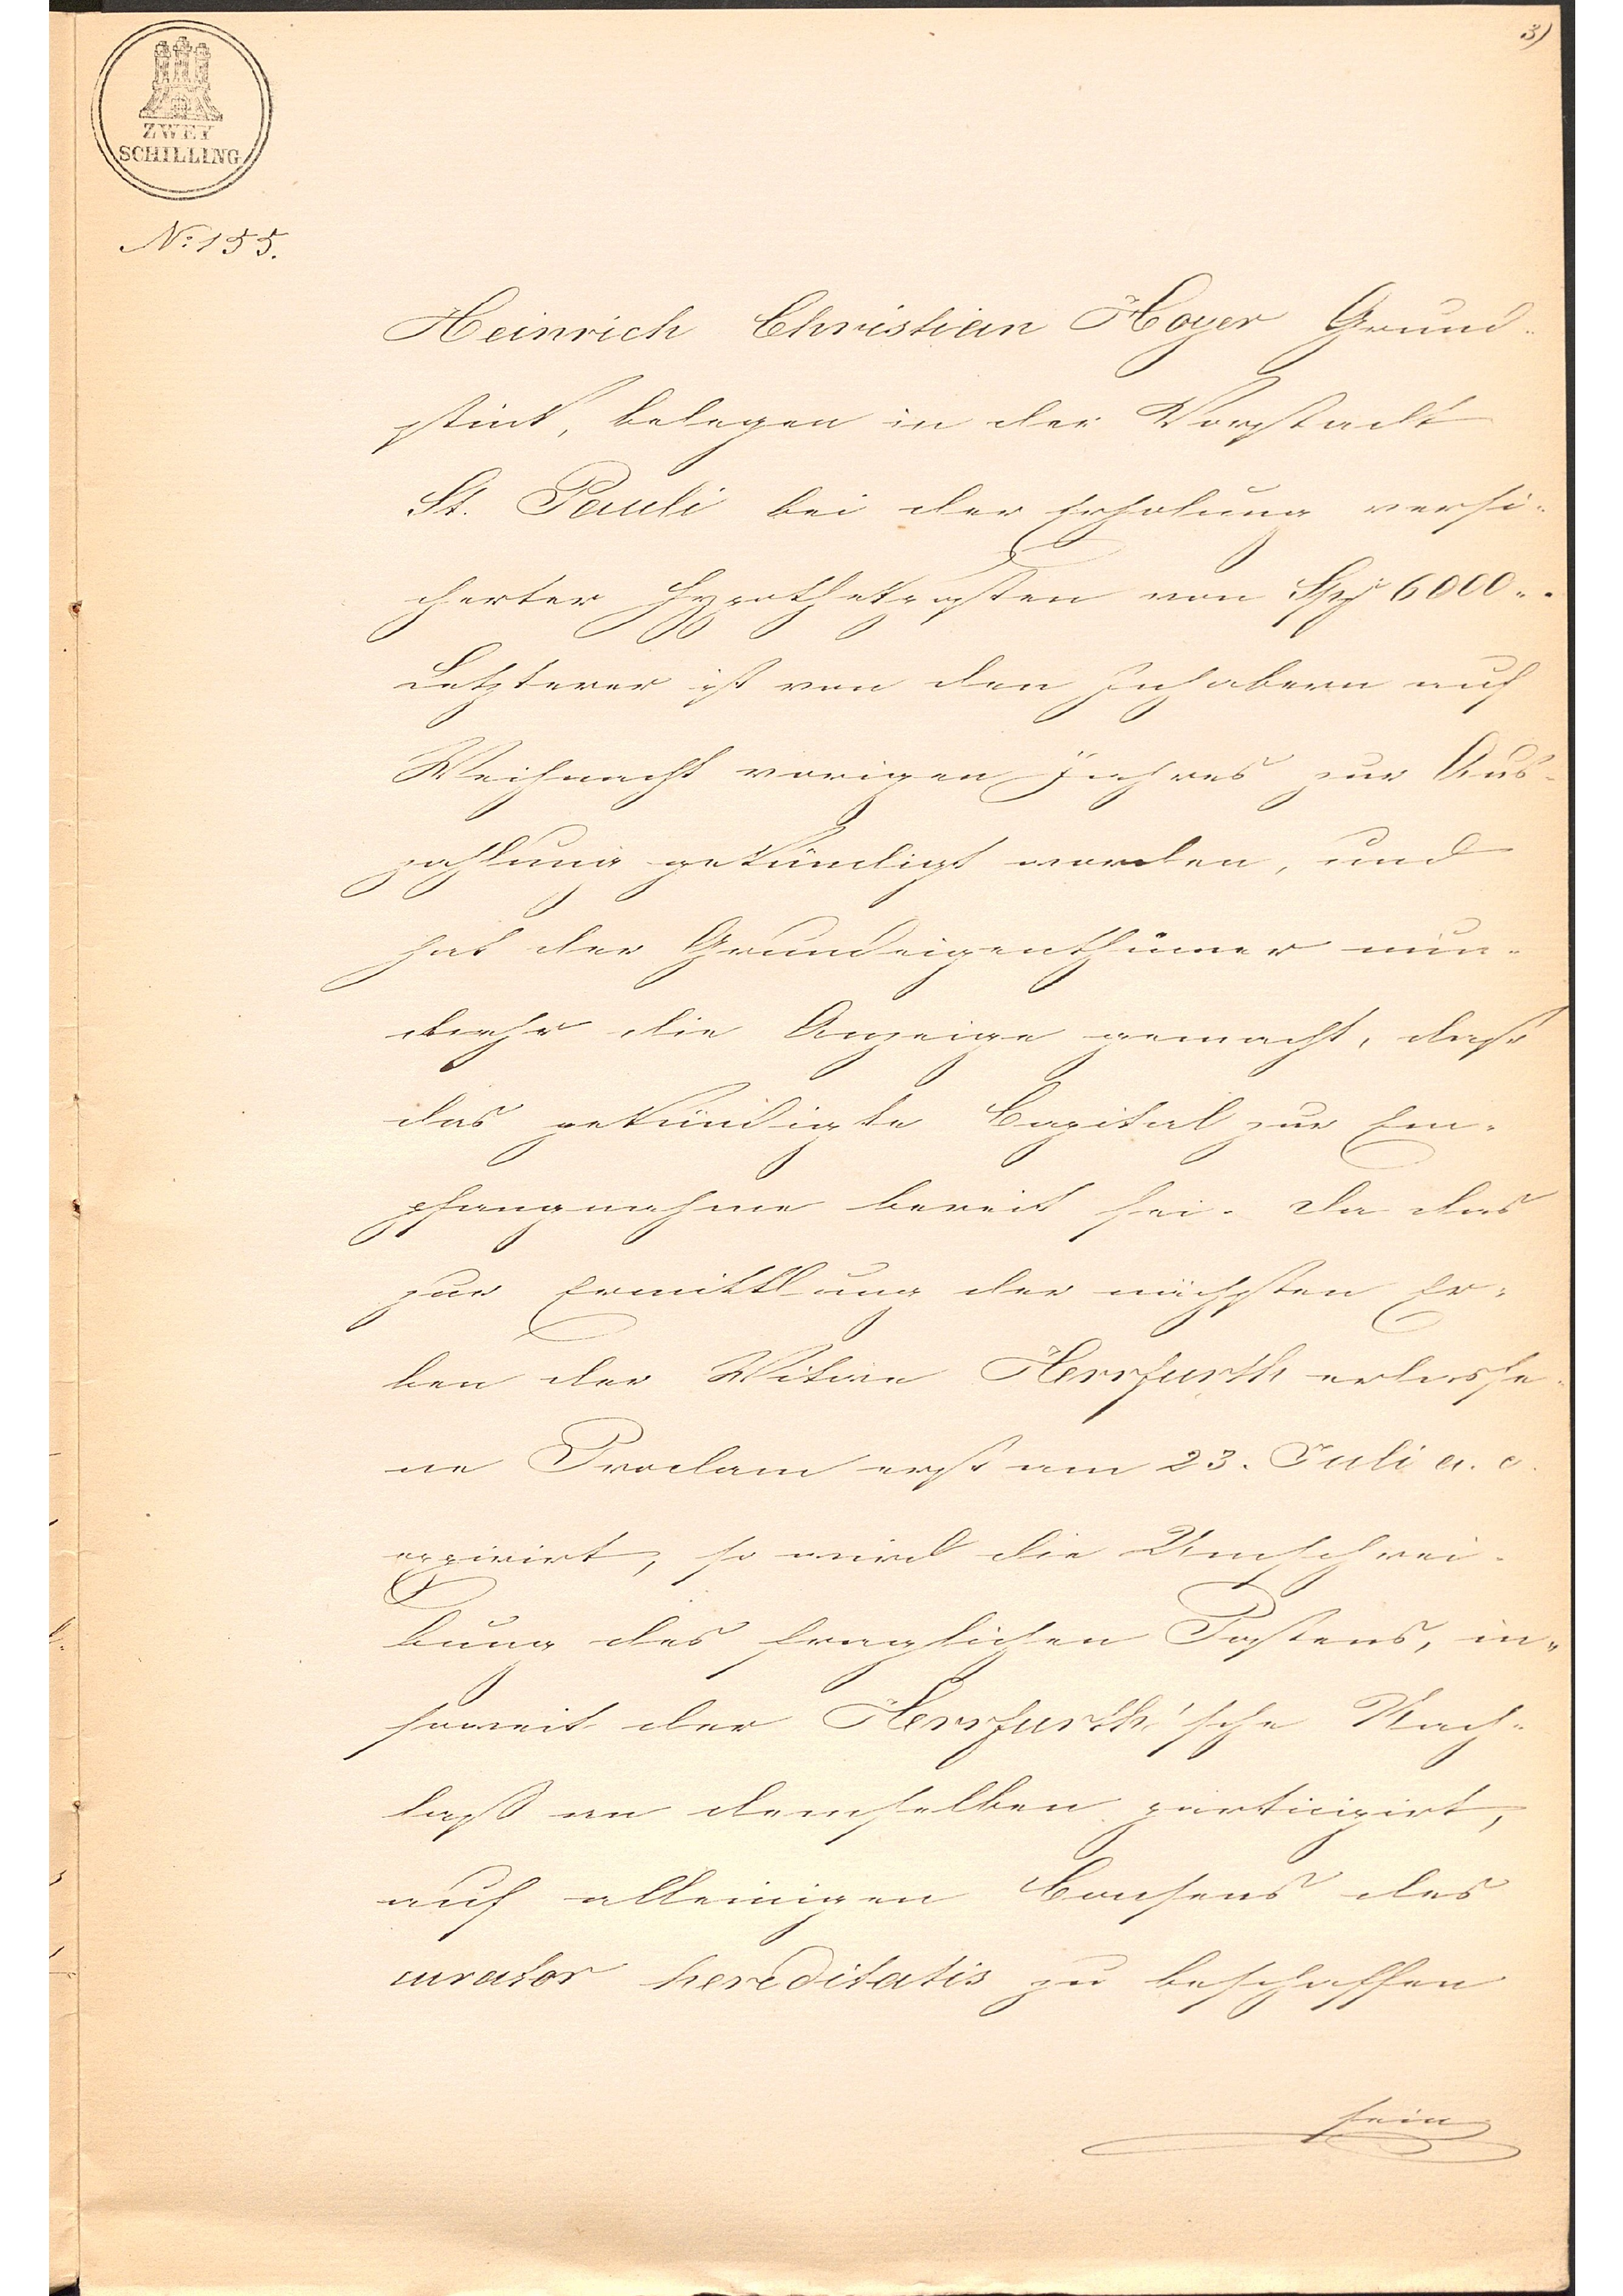 3)
ZWEY
SCHILLING
No: 155.
Heinrich Christian Hoyer Grund-
stück, belegen in der Vorstadt
St. Pauli bei der Erholung versi-
cherter Hypothekposten von 6000..
Letzterer ist von den Inhabern auf
Weihnacht vorigen Jahres zur Aus-
zahlung gekündigt worden, und
hat der Grundeigenthümer nun-
mehr die Anzeige gemacht, dass
das gekündigte Capital zur Em-
pfangnahme bereit sei. Da das
zur Ermittlung der nächsten Er-
ben der Witwe Herrfurth erlasse-
ne Proclam erst am 23. Juli a. c.
expirirt, so wird die Umschrei-
bung des fraglichen Postens, in-
soweit der Herrfurth'sche Nach-
laß an demselben participirt,
auf alleinigen Consens des
curator hereditatis zu beschaffen
sein